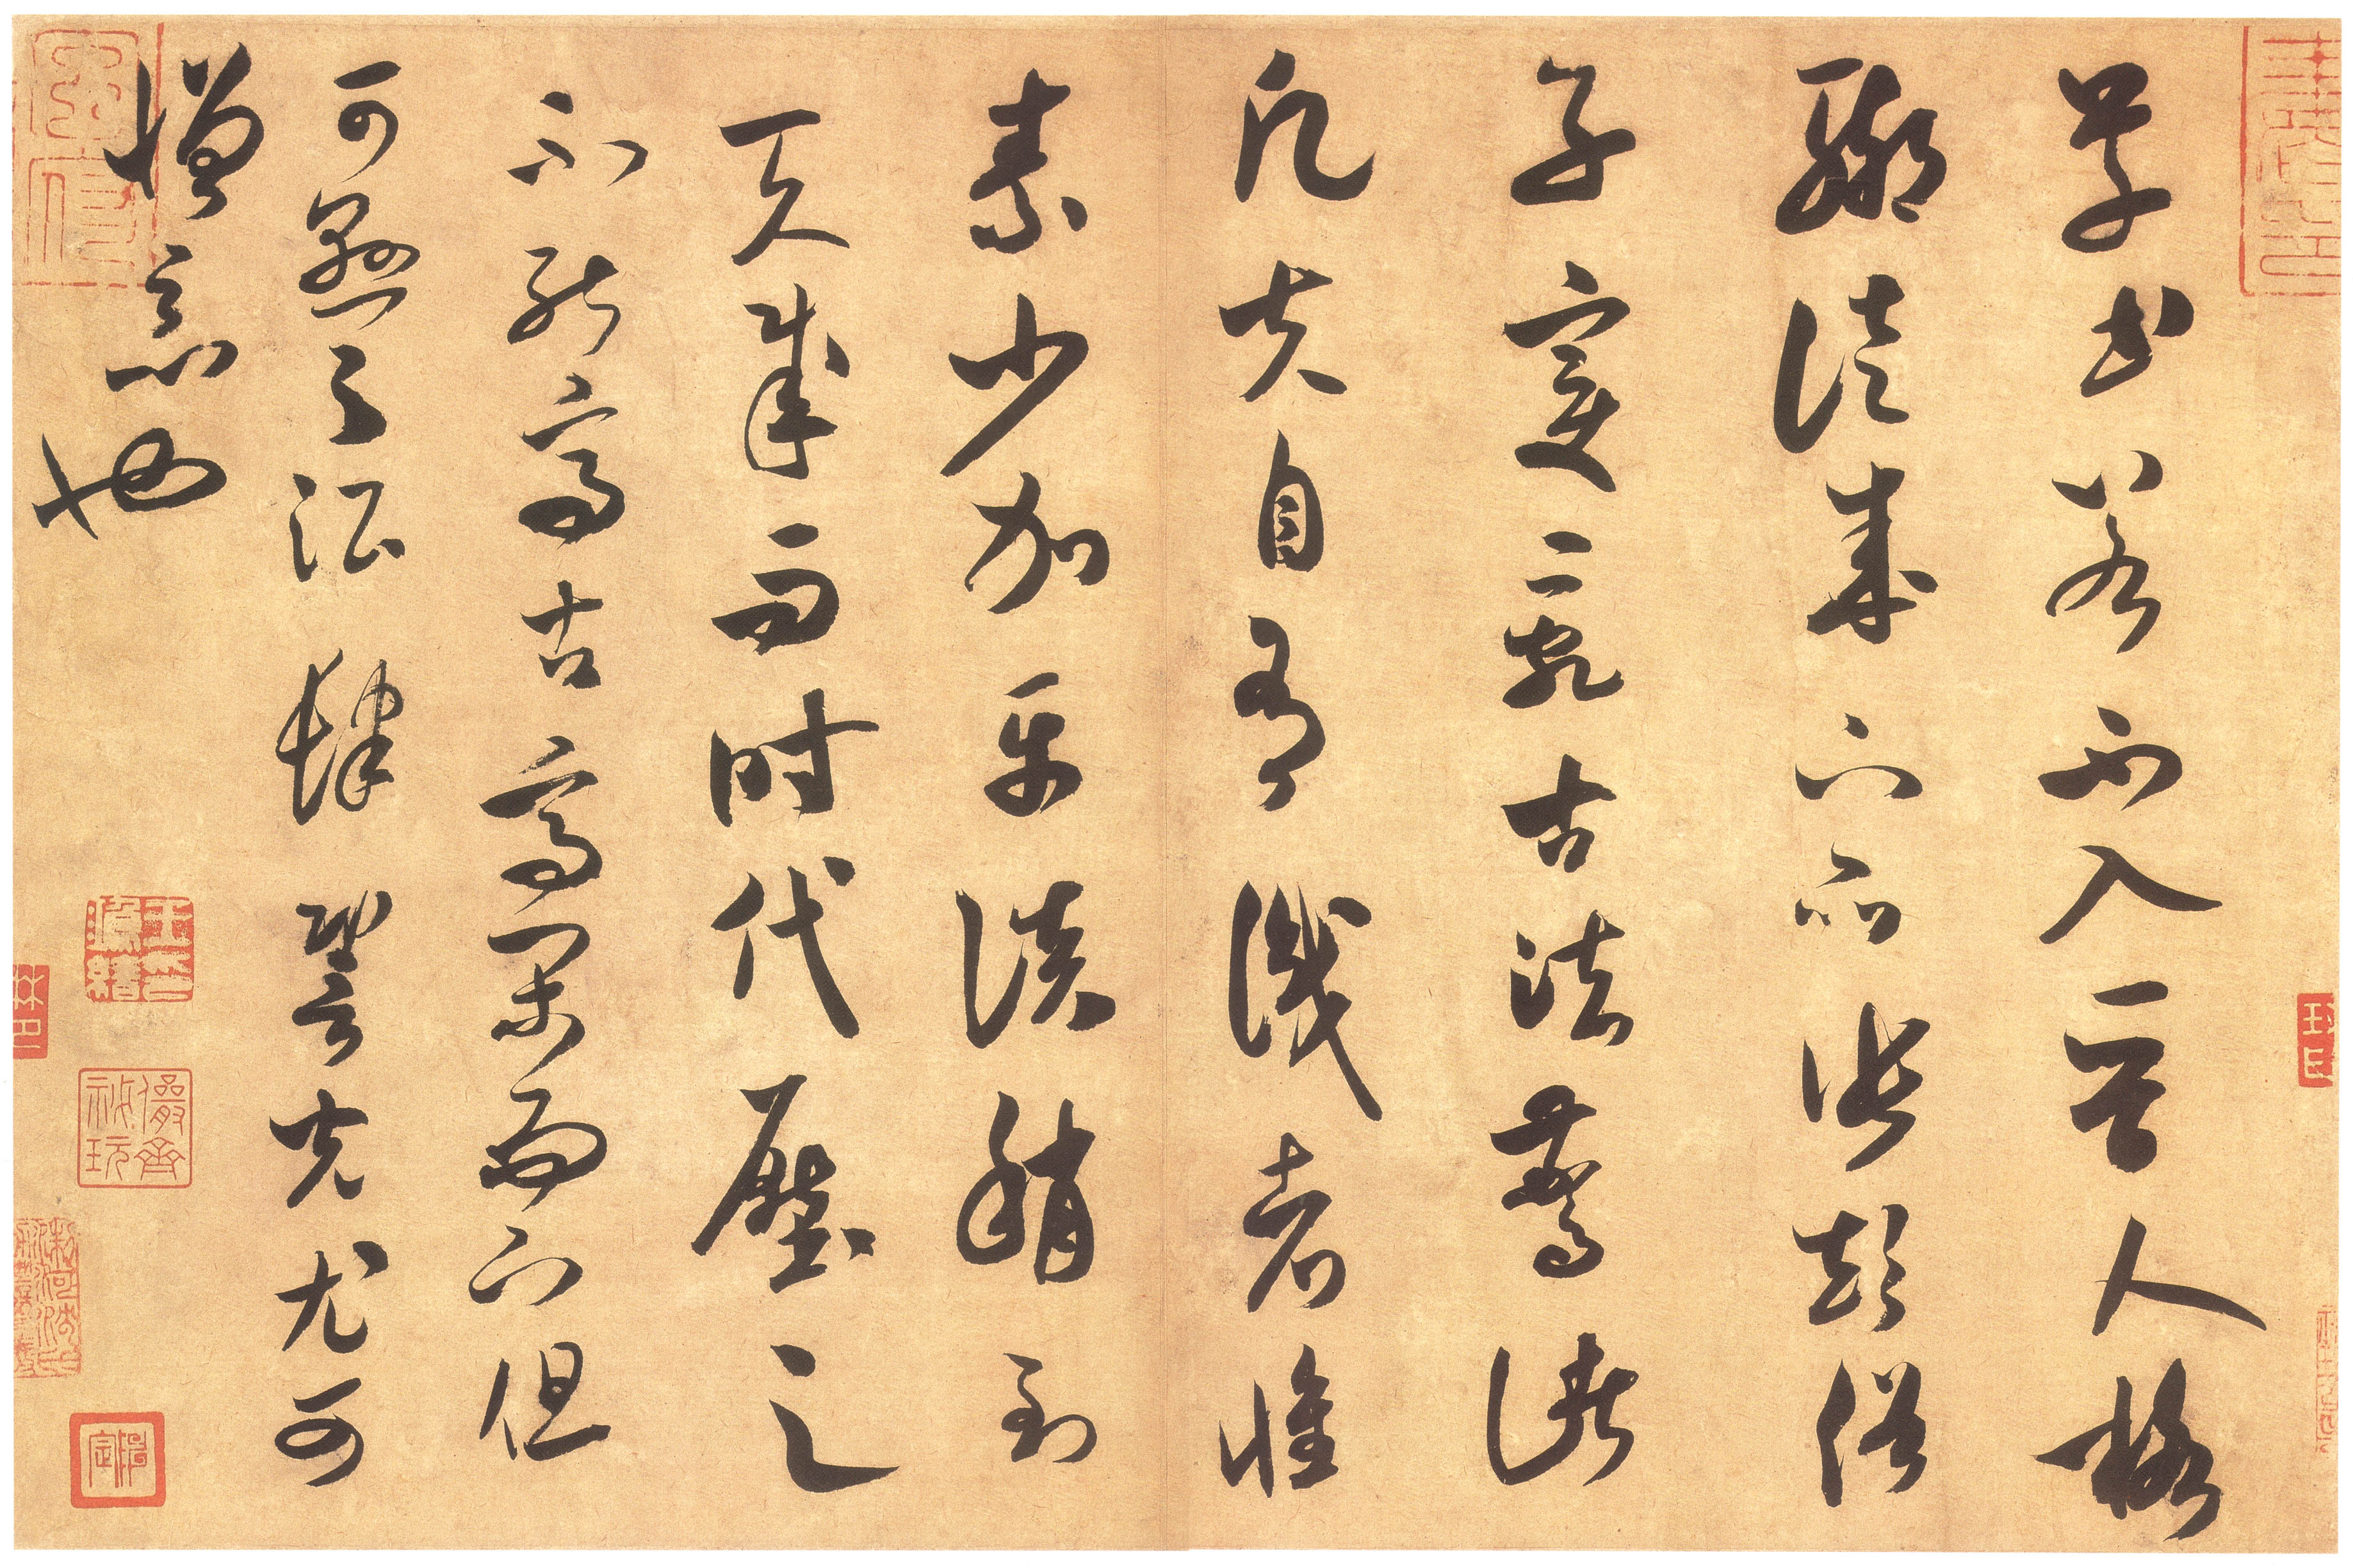 草書若不入晉人格
輒徒成下品張顛俗
子變亂古法驚諸
凡夫自有識者懷
素少加平淡稍到
天成而時代壓之
不能高古高閑而下但
可懸之酒肆䛒光尤可
憎惡也
王鴻緒印
儼齋秘玩